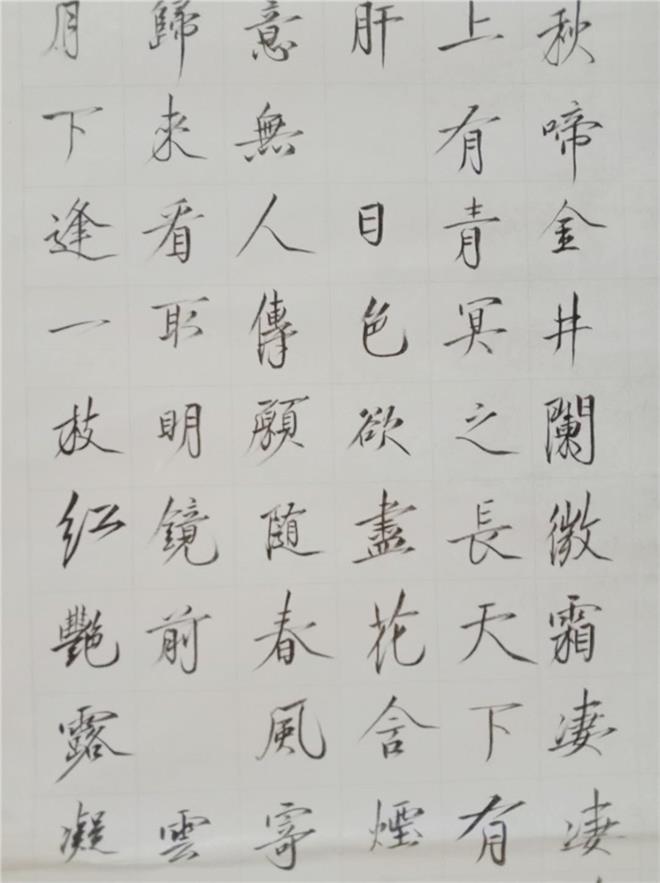 秋啼金井闌微霜淒淒
上有青冥之長天下有
肝 日色欲盡花含煙
意無人傳願随春風寄
歸來看取明鏡前 雲
月下逢一枝紅艷露凝